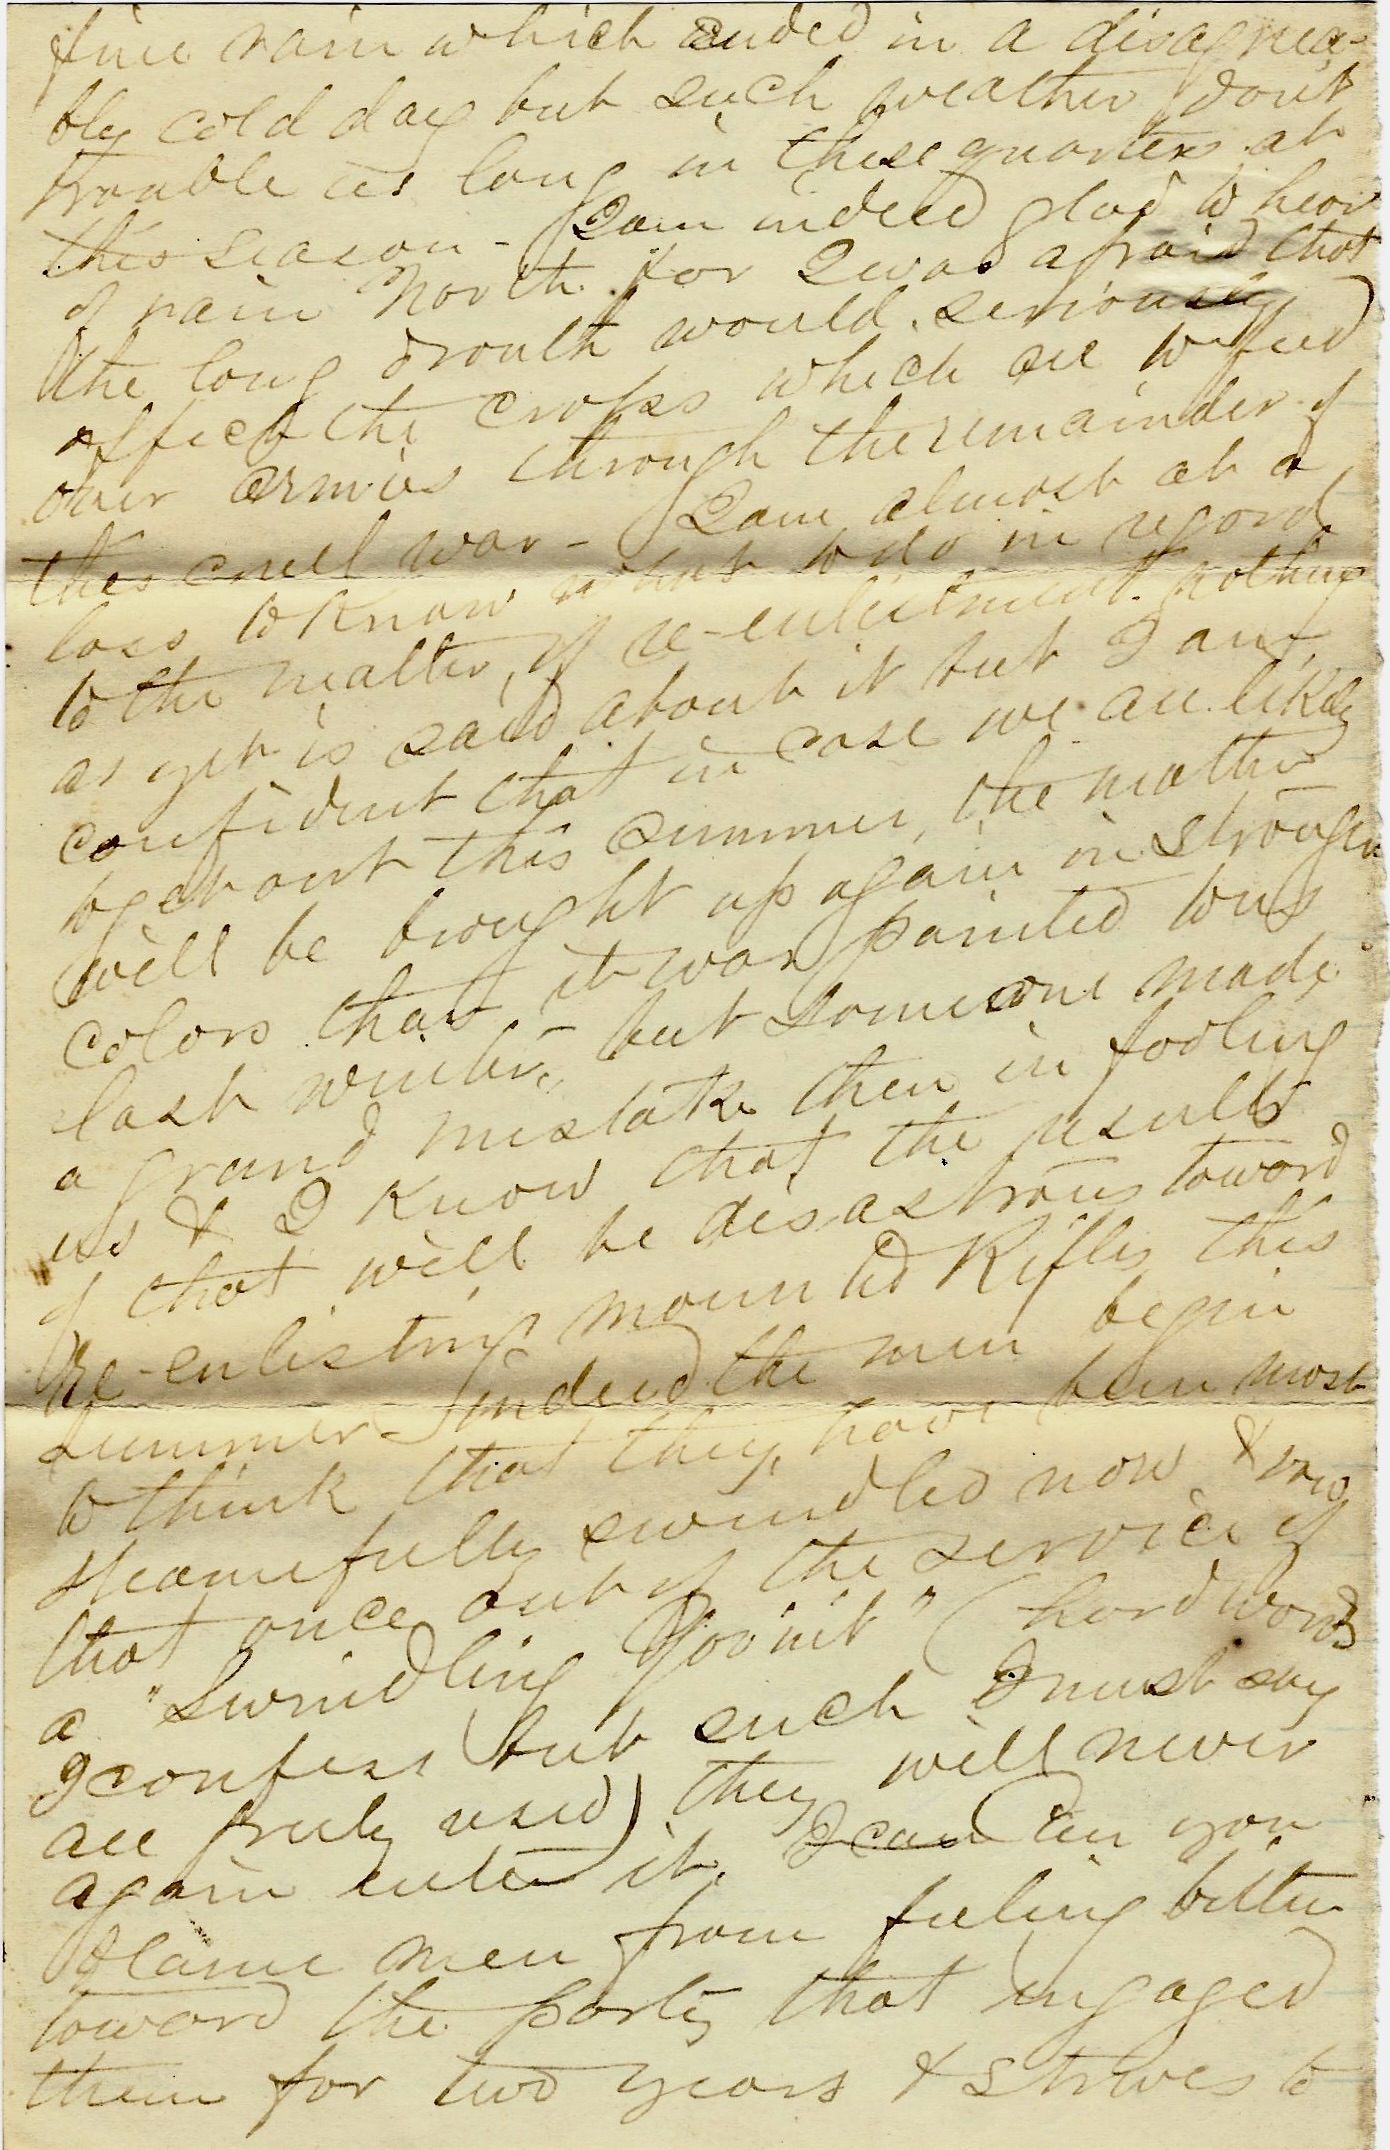 fine rain which ended in a disagreea-
bly cold day but such weather dont
trouble us long in these quarters at
this season - I am indeed glad to hear
of rain North for I was afraid that
the long drouth would seriously
affect the crops which are to feed
our armies through the remainder of
this cruel war - I am almost at a
loss to know what to do in regard
to the matter of re-enlistment. nothing
as yet is said about it but I am
confident that in case we are likely
to get out this summer, the matter
will be brought up again in stronger
colors than it was painted to us
last winter, - but some one made
a grand mistake then in fooling
us & I know that the results
of that will be disastrous toward
Re-enlisting Mounted Rifles this
summer - Indeed the men begin
to think that they have been most
shamefully swindled now & vow
that once out of the service of
a "Swindling Gov'nt" (hard words
I confess but such I must say
are freely used) they will never
again enter it. I can Can you
blame men from feeling bitter
toward the party that engaged
them for two years & strives to